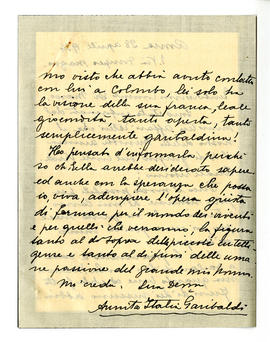 mo visto che abbia avuto contatto
con lui a Colombo, lei solo ha
la visione della sua franca, leale
giocondità, tanto aperta, tanto
semplicemente garibaldina!
Ho pensato d'informarla, perchè
so ch'Ella avrebbe desiderato sapere
ed anche con la speranza che possa
io viva, adempiere l'opera giusta
di formare per il mondo dei viventi
e per quelli che verranno, la figura
tanto al di sopra delle piccole
e tanto al di fuori delle umane
passione del grande mio Nonno.
Mi creda. Sua Dev.ma
Annita Italia Garibaldi